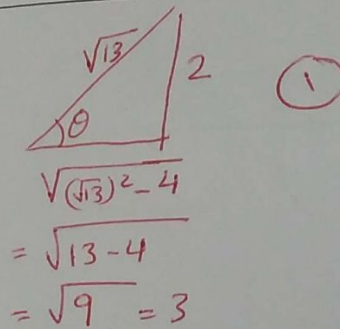 √13
2
①
θ
√(√13)² - 4
= √13 - 4
= √9 = 3